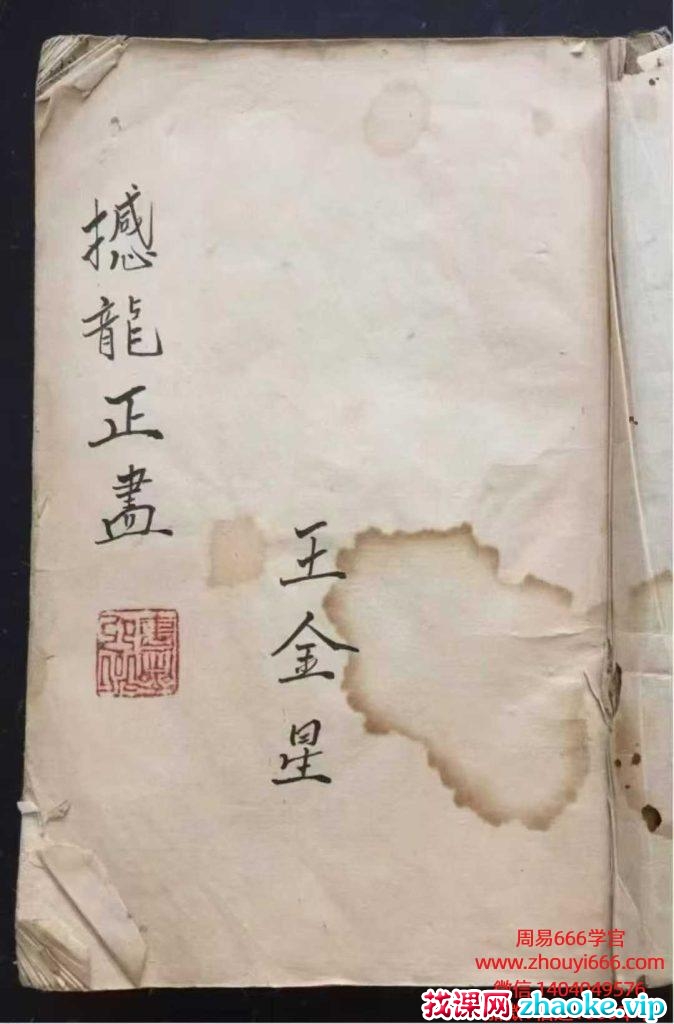 撼龍正畫
王金星
周易666学官
www.zhouyi666.com
微信 1404949576
找课网zhaoke.vip